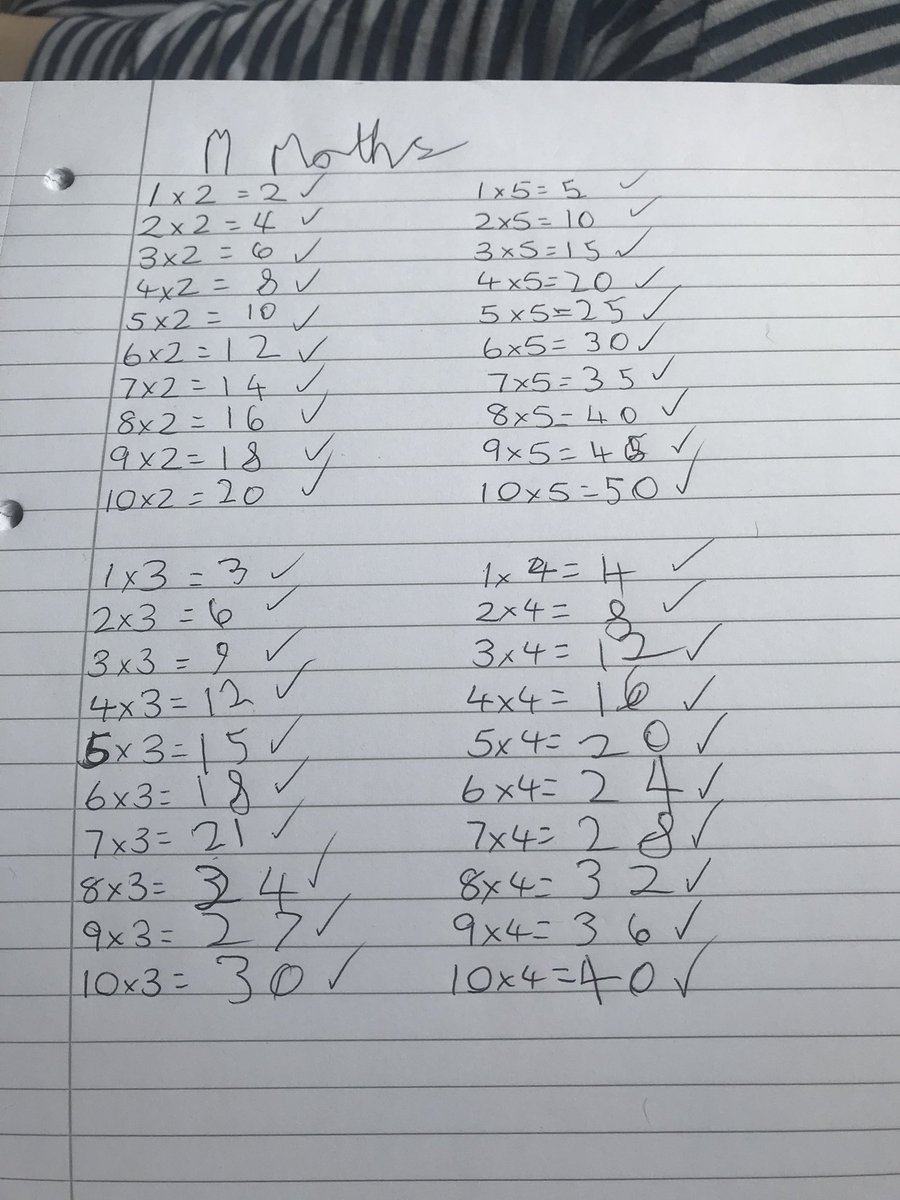 M Maths
1 x 2 = 2 ✓
2 x 2 = 4 ✓
3 x 2 = 6 ✓
4 x 2 = 8 ✓
5 x 2 = 10 ✓
6 x 2 = 12 ✓
7 x 2 = 14 ✓
8 x 2 = 16 ✓
9 x 2 = 18 ✓
10 x 2 = 20 ✓
1 x 5 = 5 ✓
2 x 5 = 10 ✓
3 x 5 = 15 ✓
4 x 5 = 20 ✓
5 x 5 = 25 ✓
6 x 5 = 30 ✓
7 x 5 = 35 ✓
8 x 5 = 40 ✓
9 x 5 = 45 ✓
10 x 5 = 50 ✓
1 x 3 = 3 ✓
2 x 3 = 6 ✓
3 x 3 = 9 ✓
4 x 3 = 12 ✓
5 x 3 = 15 ✓
6 x 3 = 18 ✓
7 x 3 = 21 ✓
8 x 3 = 24 ✓
9 x 3 = 27 ✓
10 x 3 = 30 ✓
1 x 4 = 4 ✓
2 x 4 = 8 ✓
3 x 4 = 12 ✓
4 x 4 = 16 ✓
5 x 4 = 20 ✓
6 x 4 = 24 ✓
7 x 4 = 28 ✓
8 x 4 = 32 ✓
9 x 4 = 36 ✓
10 x 4 = 40 ✓